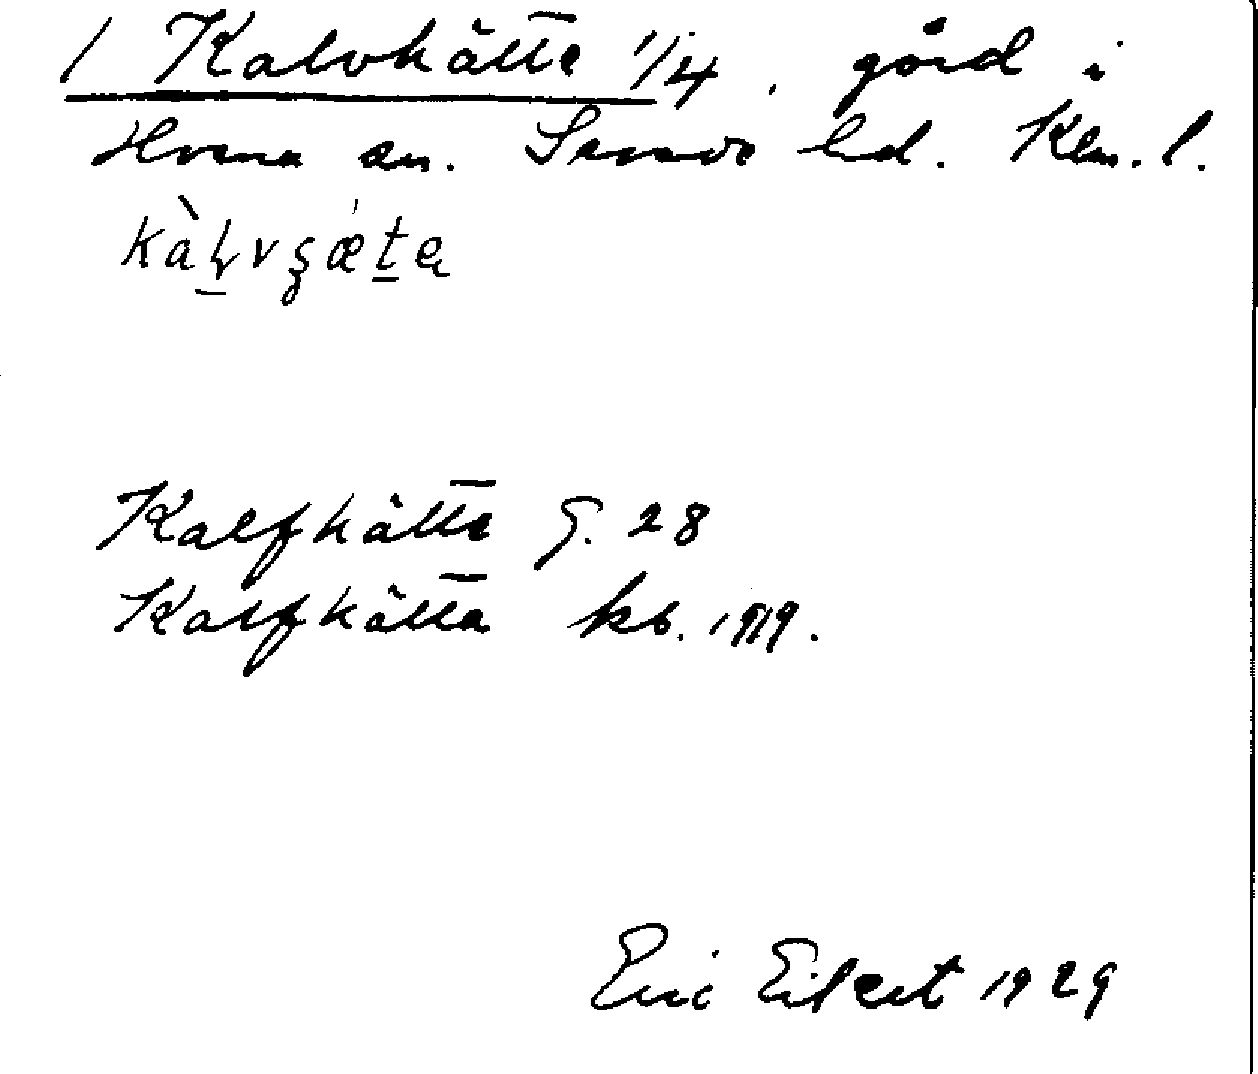 1 Kalvkätte 1/4, gård i
Hvena sn. Sevede hd. Klm. l.
kàḷvʂæ̀te
Kalfkätte G. 28
Kalfkätta kb. 1919.
Eric Eilert 1929